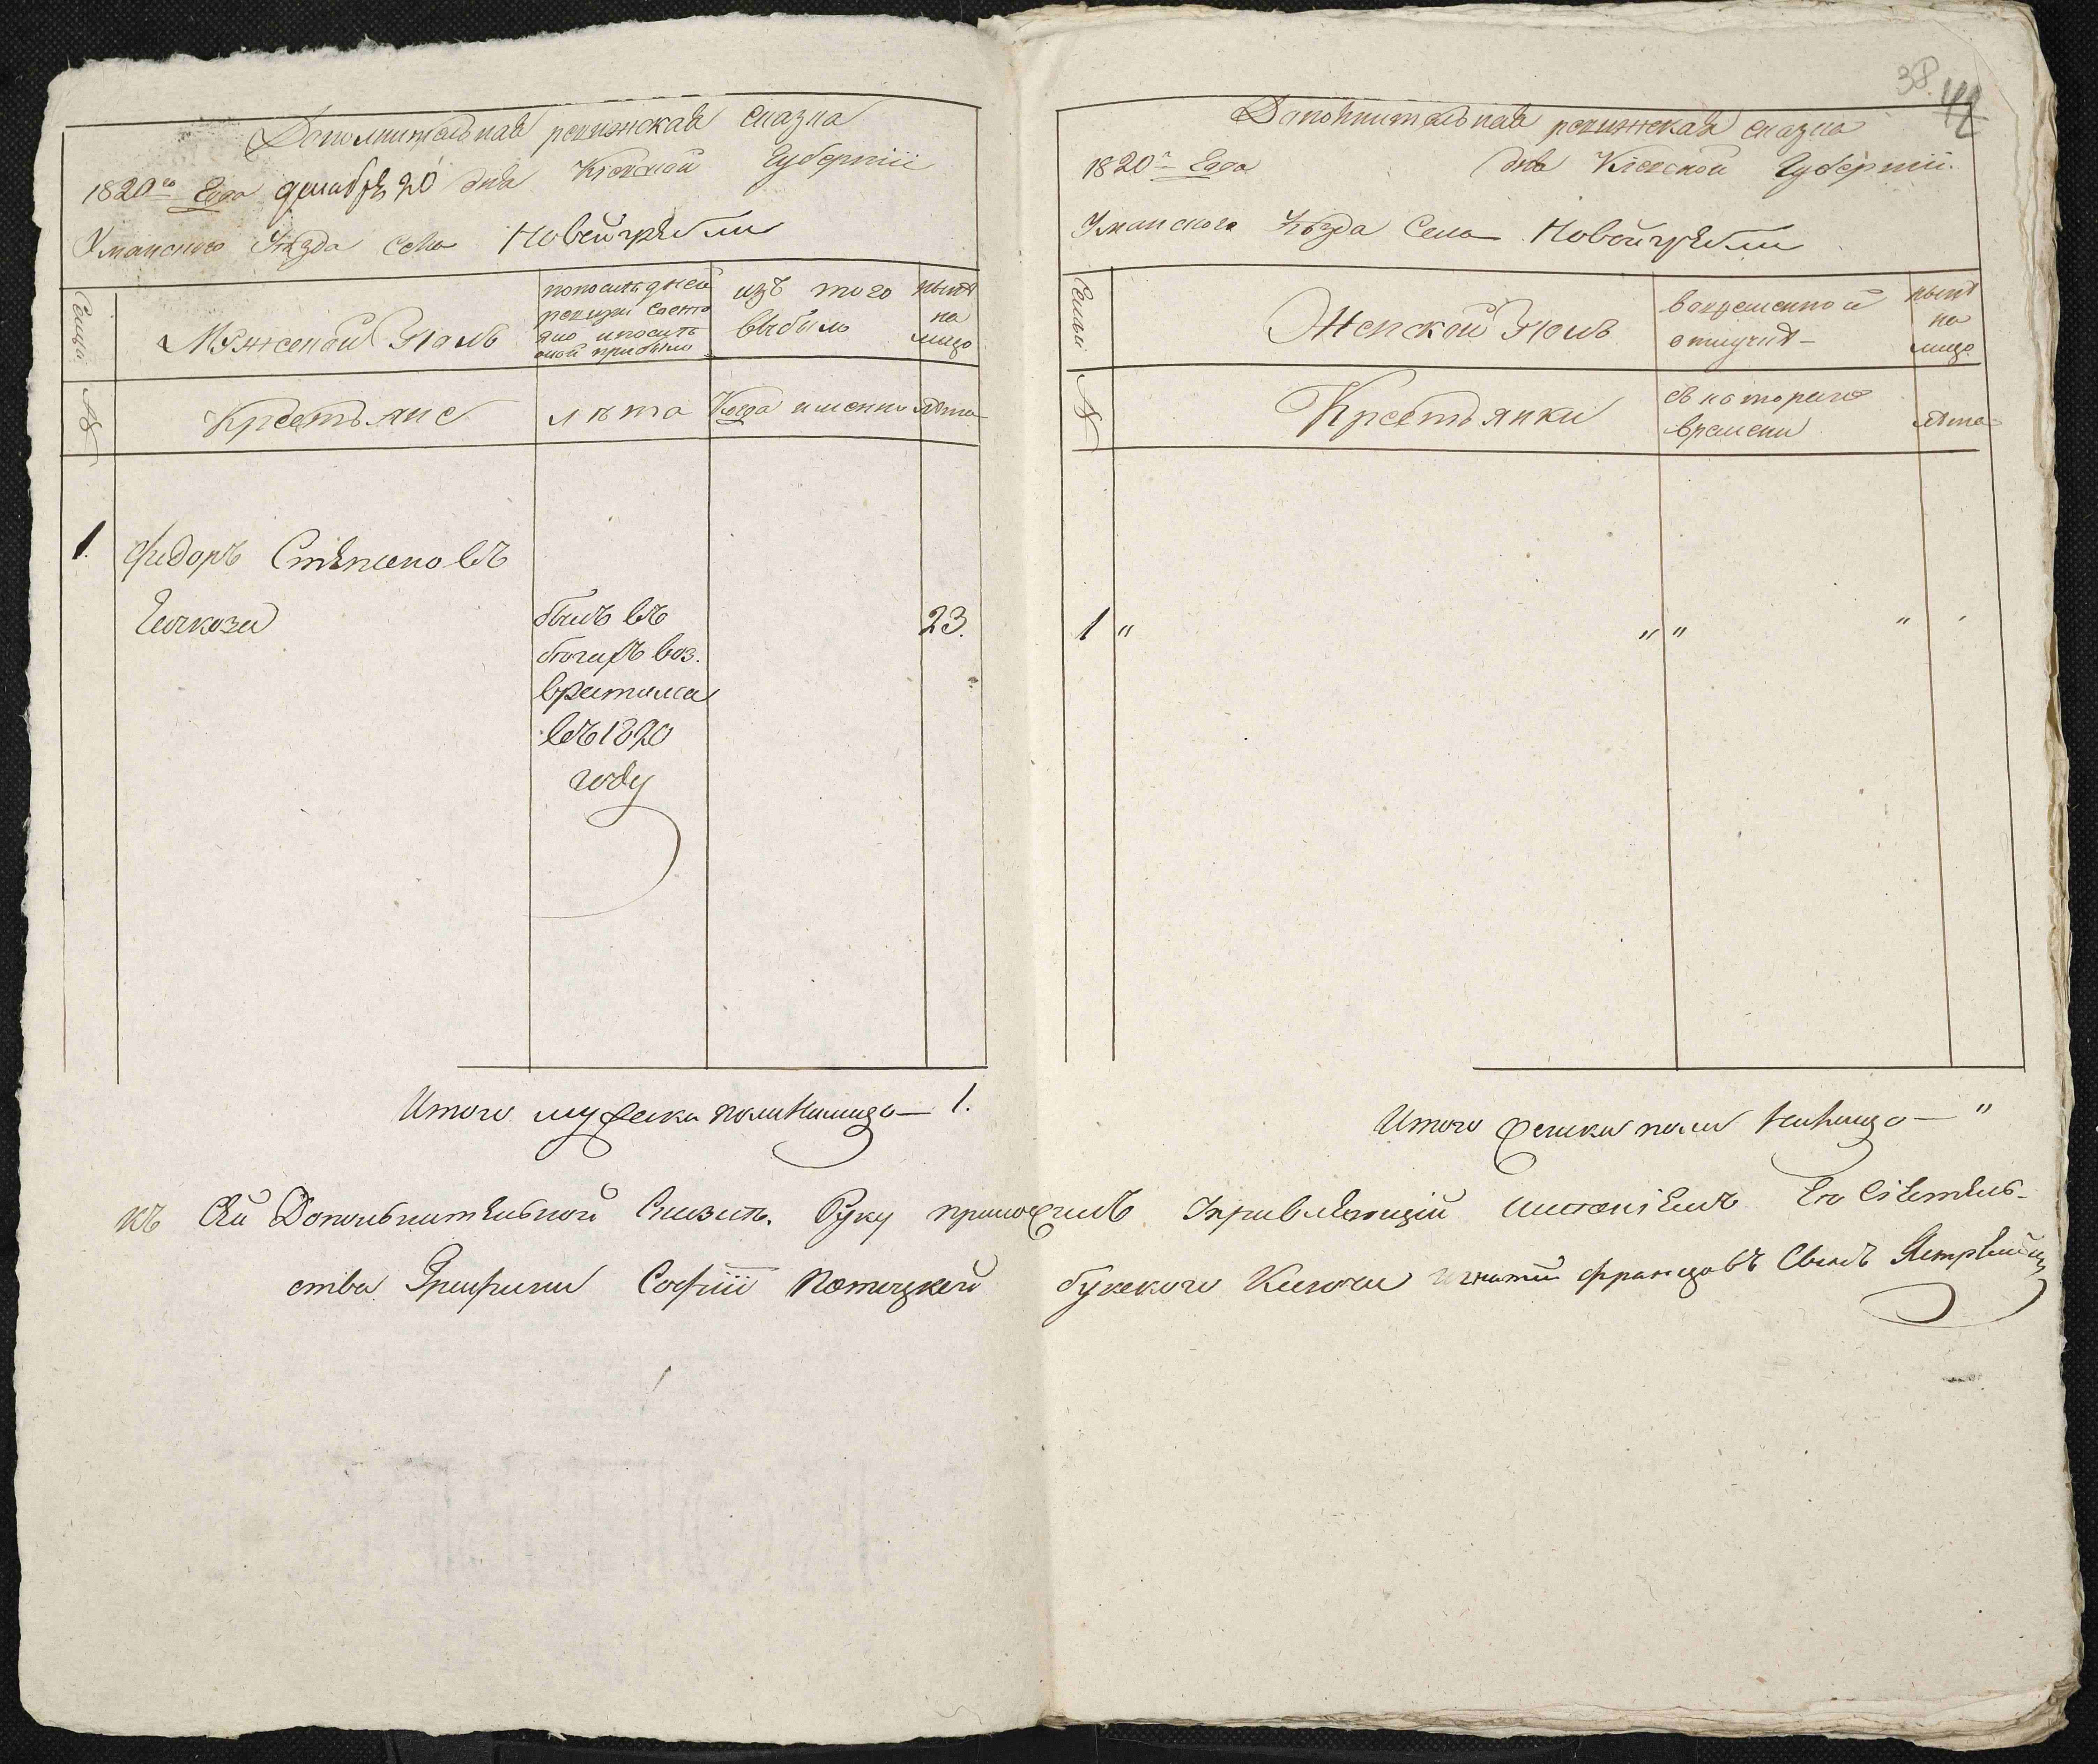 Дополнительная ревижская сказка
1820го Года декабря 20 дня Кіевской Губерніи
Уманского Уѣзда Села Новойгребли
Семьи
Мужеской Полъ
попоследней
ревизіи состо
яло ипослѣ
оной прибыло
изъ того
выбыло
нынѣ
на
лицо
№
Крестьяне
лѣта
Когда именно
лѣта
1.
Федоръ Степановъ
былъ въ
23.
бегахъ воз.
вратился
въ 1820
году
Итого мужеска пола Налицо — 1.
38.
42
Дополнительная ревижская сказка
1820го Года дня Кіевской Губерніи.
Уманского Уѣзда Села Новойгребли
Семьи
Женской Полъ
вовременной
отлучкѣ
нынѣ
на
лицо
№
Крестьянки
съ котораго
времени
лѣта
1 " " " "
Итого женска пола Налицо — "
къ Сей Дополнительной Сказкѣ. Руку приложилъ Управляющій имѣніемъ Ея Сіятель-
ства Графини Софіи Потоцкой букского Ключа Игнатій францовъ Сынъ